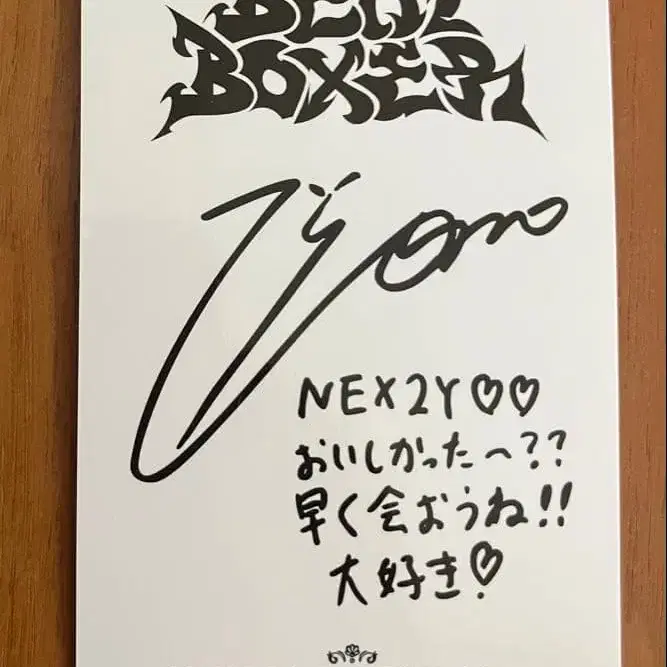 BOXER
NEX2Y♡♡
おいしかったへ??
早く会おうね!!
大好き♡!